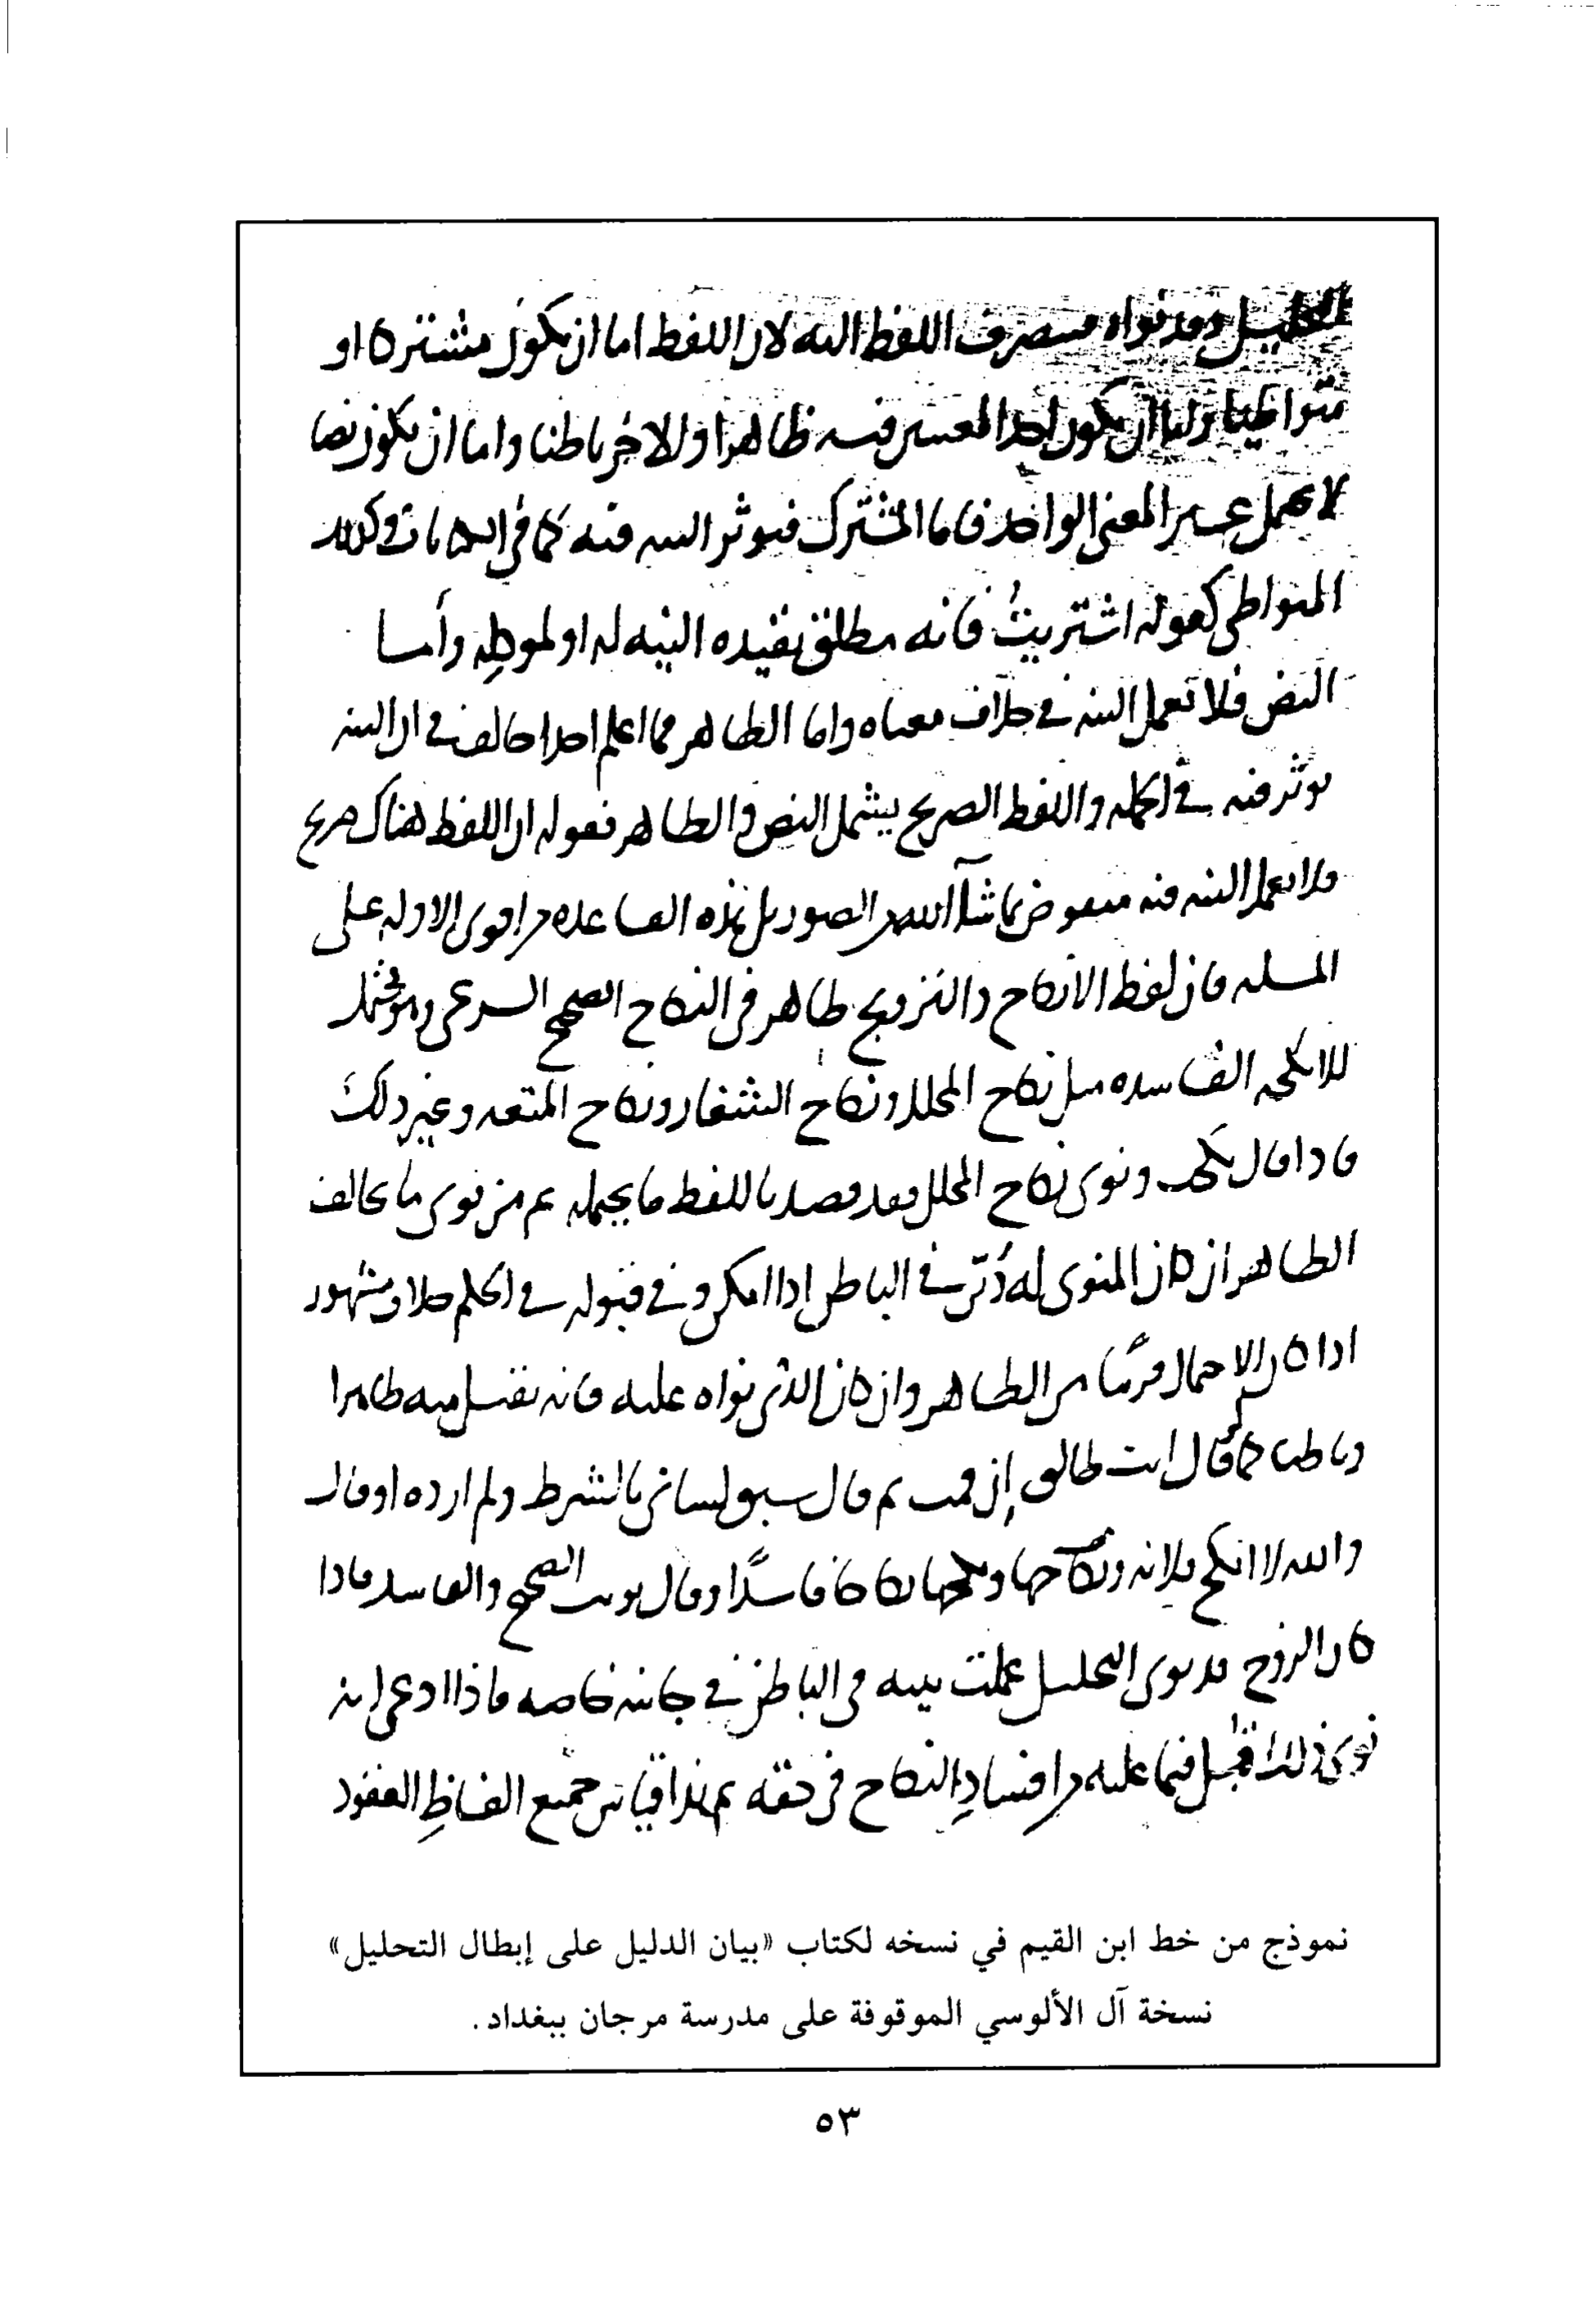 التحليل وقد نواه فينصرف اللفظ اليه لان اللفظ اما ان يكون مشتركا او
متواطيا واما ان يكون احد المعنيين فيه ظاهرا والاخر باطنا واما ان يكون نصا
لا يحتمل غير المعنى الواحد فاما المشترك فتوثر النيه فيه كما في الكنايات وكذلك
المتواطي كقوله اشتريت فانه مطلق تقيده النيه له او لموكله واما
النص فلا تعمل النيه في خلاف معناه واما الظاهر فما اعلم احدا خالف في ان النيه
توثر فيه في الجمله واللفظ الصريح يشمل النص والظاهر فقوله ان اللفظ هناك صريح
فلا تعمل النيه فيه منقوض بما شا الله من الصور بل هذه القاعده من اقوى الادله على
المسله فان لفظ الانكاح والتزويج ظاهر في النكاح الصحيح الشرعي وهو محتمل
للانكحه الفاسده مثل نكاح المحلل ونكاح الشغار ونكاح المتعه وغير ذلك
فاذا قال نكحت ونوى نكاح المحلل فقد قصد باللفظ ما يحتمله ثم من نوى ما يخالف
الظاهر ان كان المنوي له دُيّن في الباطن اذا امكن وفي قبوله في الحكم خلاف مشهور
اذا كان الاحتمال قريبا من الظاهر وان كان الذي نواه عليه فانه يقبل فيه ظاهرا
وباطنا كما لو قال انت طالق إن قمت ثم قال سبق لساني بالشرط ولم ارده او قال
والله لا انكح فلانه ونكحها نكاحا فاسدًا وقال نويت الصحيح والفاسد فاذا
كان الزوج قد نوى التحليل عملت نيته في الباطن في جانبه خاصه فاذا ادعى انه
نوى ذلك قبل فيما عليه من افسادِ النكاح في حقه ثم هذا قياس جميع الفاظِ العقود
نموذج من خط ابن القيم في نسخه لكتاب «بيان الدليل على إبطال التحليل»
نسخة آل الألوسي الموقوفة على مدرسة مرجان ببغداد.
٥٣